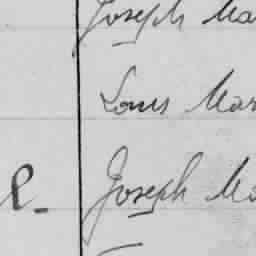 Joseph Mar
Louis Mar
P. Joseph Ma